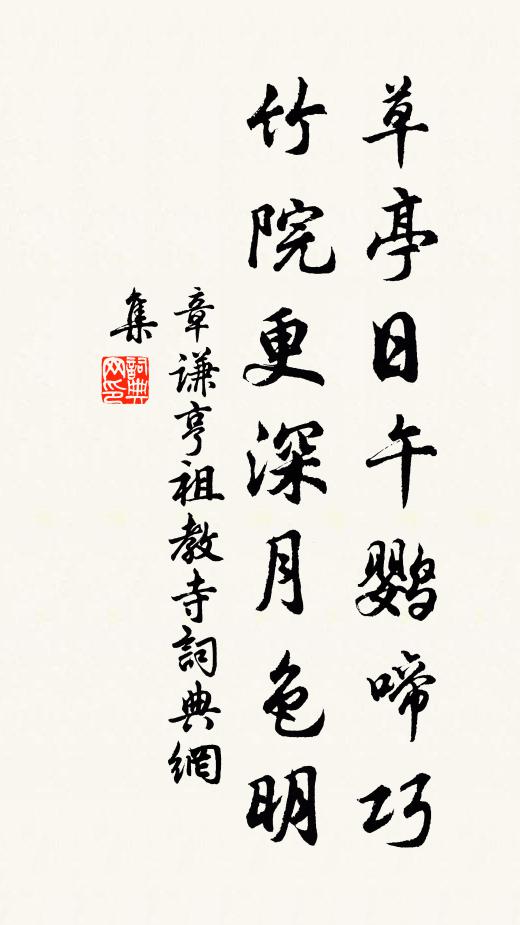 草亭日午鸚啼巧
竹院更深月色明
章謙亨祖教寺詞典網
集
詞典
网印